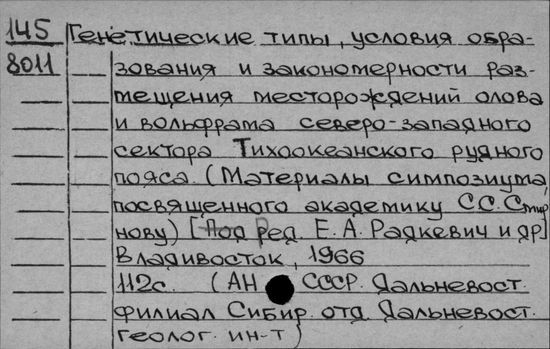 145 Генетические типы, условия обра-
8011 зования и закономерности раз-
мещения месторождений олова
и вольфрама северо-западного
сектора Тихоокеанского рудного
пояса. (Материалы симпозиума,
посвященного академику С.С. Смир
нову) [Под Ред. Е.А. Радкевич и др]
Владивосток, 1966
112с. (АН СССР. Дальневост.
филиал Сибир. отд. Дальневост.
геолог. ин-т)